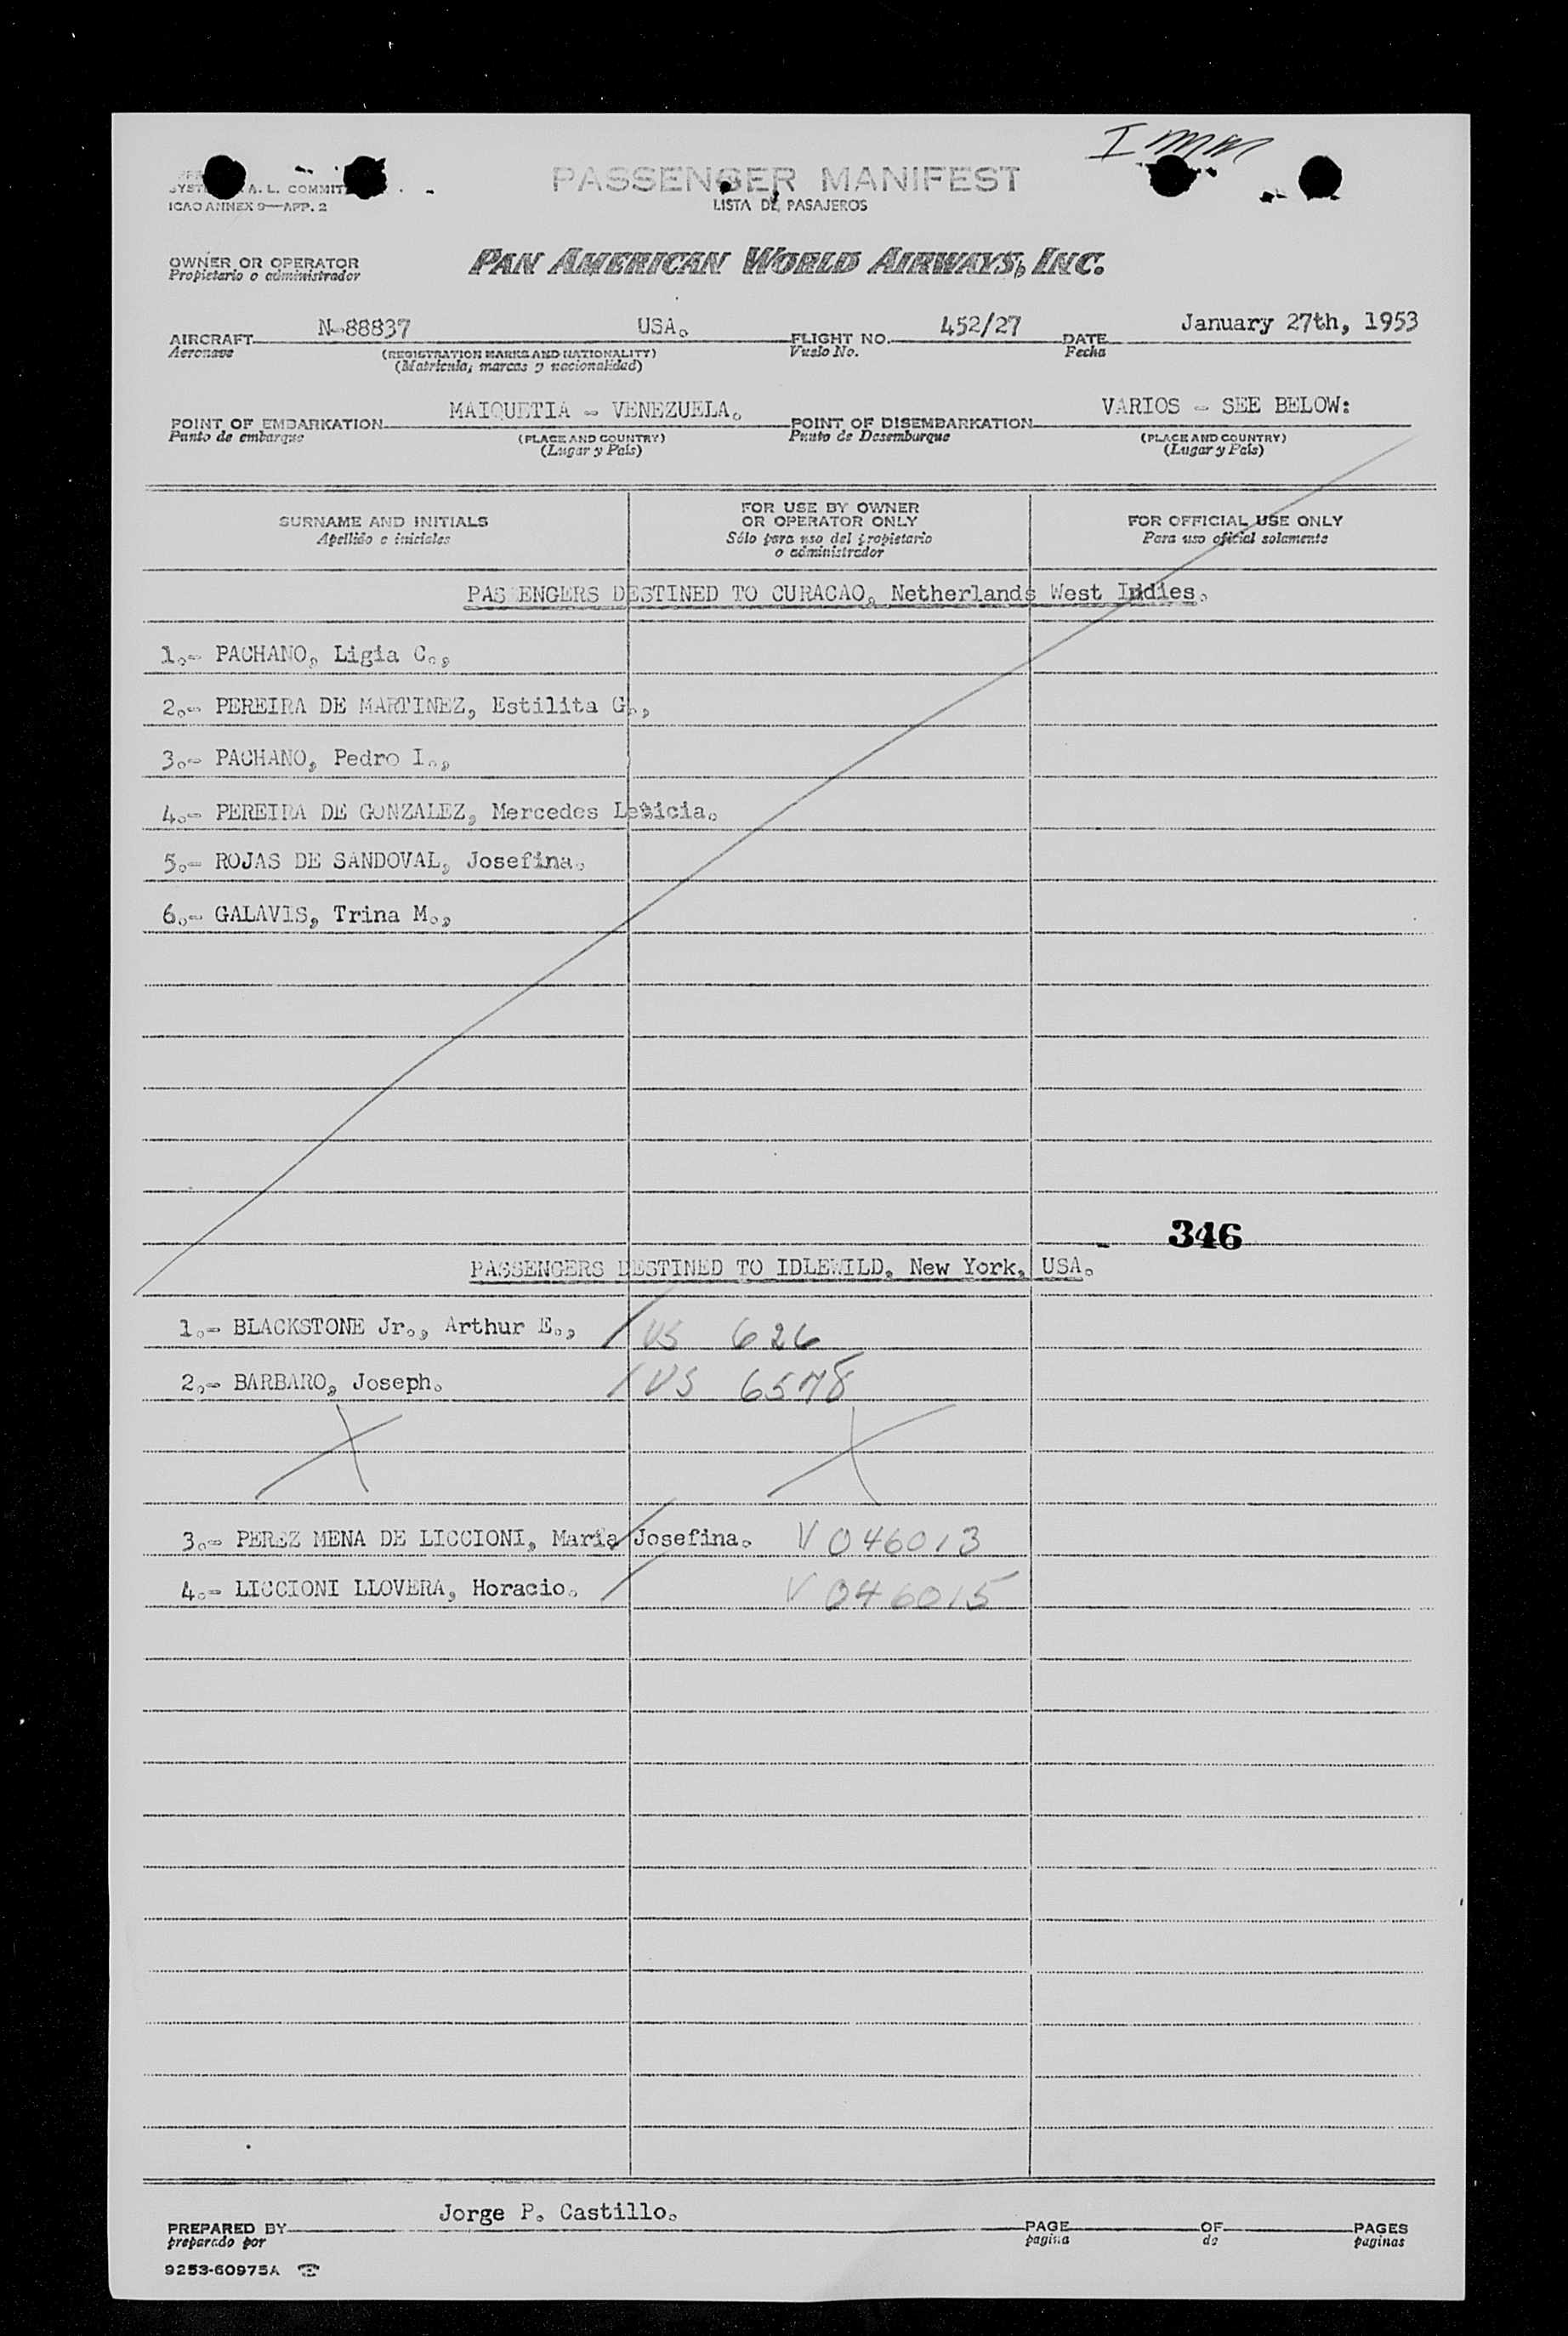 Imm
PASSENGER MANIFEST
LISTA DE PASAJEROS
A. L. COMMIT
ICAO ANNEX 9—APP. 2
OWNER OR OPERATOR
Propietario o administrador
PAN AMERICAN WORLD AIRWAYS, INC.
AIRCRAFT N-88837 USA. FLIGHT NO. 452/27 DATE January 27th, 1953
Aeronave (REGISTRATION MARKS AND NATIONALITY) Vuelo No. Fecha
(Matricula, marcas y nacionalidad)
POINT OF EMBARKATION MAIQUETIA - VENEZUELA. POINT OF DISEMBARKATION VARIOS - SEE BELOW:
Punto de embarque (PLACE AND COUNTRY) Punto de Desembarque (PLACE AND COUNTRY)
(Lugar y País) (Lugar y País)
SURNAME AND INITIALS FOR USE BY OWNER OR OPERATOR ONLY FOR OFFICIAL USE ONLY
Apellido e iniciales Sólo para uso del propietario o administrador Para uso oficial solamente
PAS ENGERS DESTINED TO CURACAO, Netherlands West Indies.
1.- PACHANO, Ligia C.,
2.- PEREIRA DE MARTINEZ, Estilita G.,
3.- PACHANO, Pedro I.,
4.- PEREIRA DE GONZALEZ, Mercedes Leticia.
5.- ROJAS DE SANDOVAL, Josefina.
6.- GALAVIS, Trina M.,
346
PASSENGERS DESTINED TO IDLEWILD, New York, USA.
1.- BLACKSTONE Jr., Arthur E., / US 626
2.- BARBARO, Joseph. / US 6578
3.- PEREZ MENA DE LICCIONI, Maria Josefina. V 046013
4.- LICCIONI LLOVERA, Horacio. V 046015
PREPARED BY Jorge P. Castillo. PAGE OF PAGES
preparado por pagina de paginas
9253-60975A